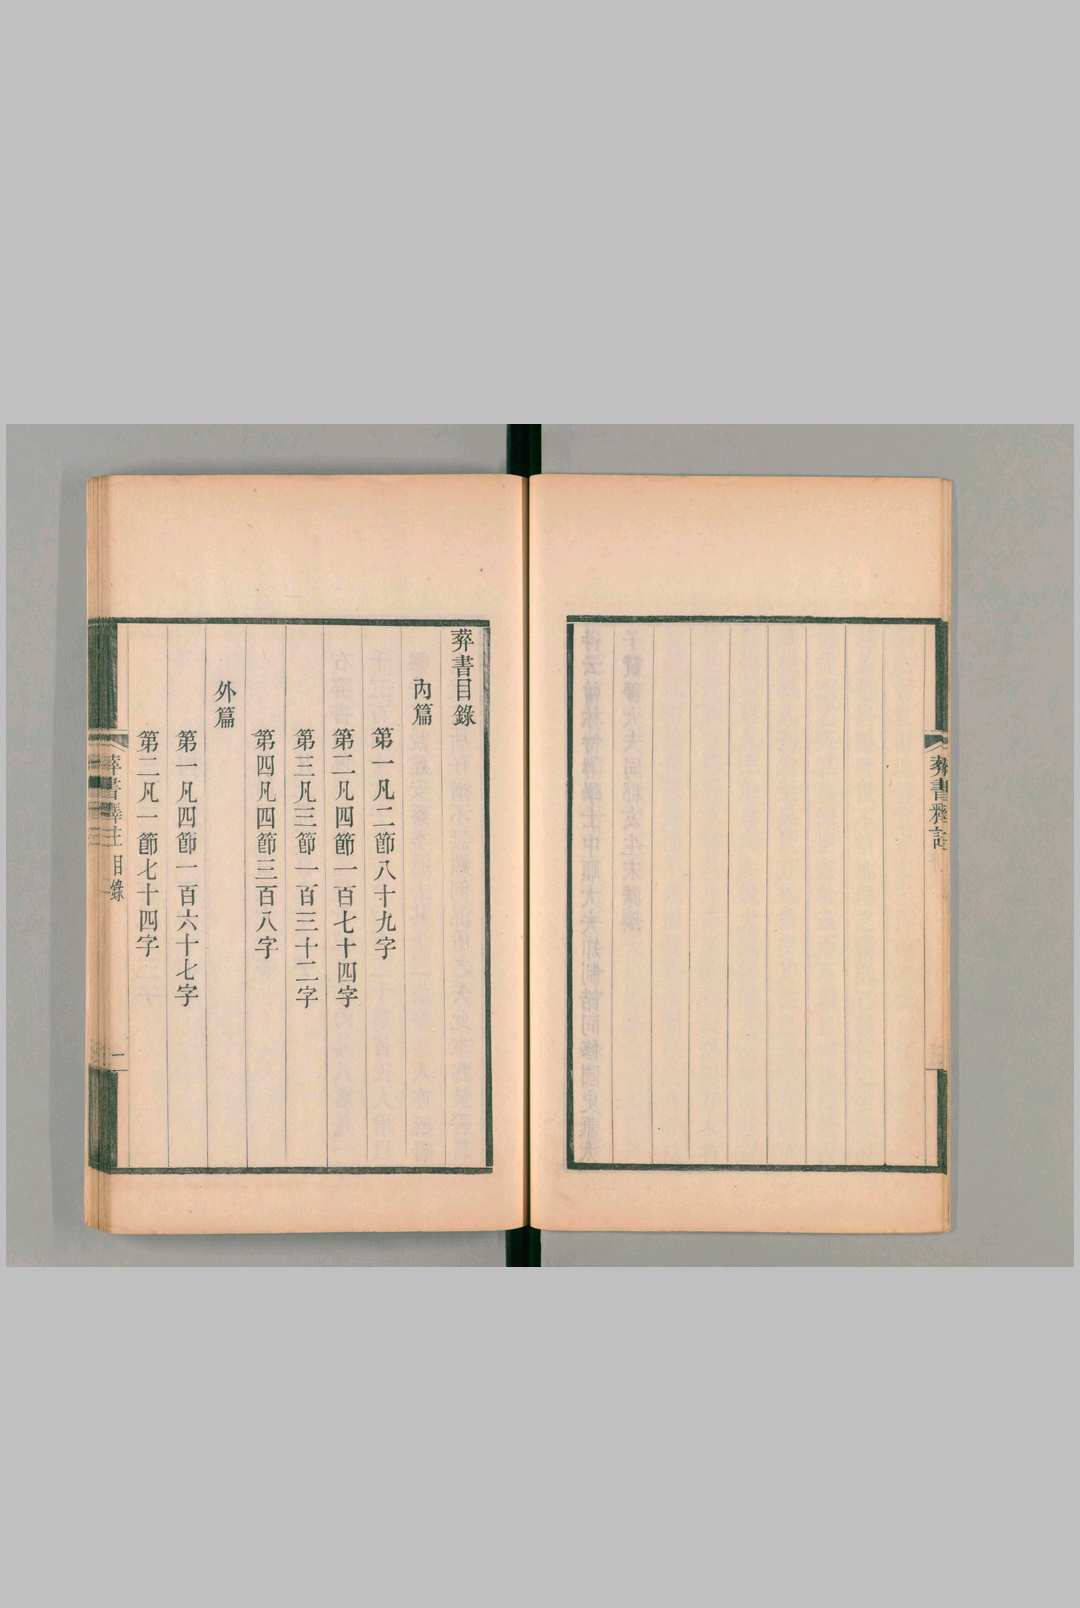 葬書釋註
葬書目錄
內篇
第一凡二節八十九字
第二凡四節一百七十四字
第三凡三節一百三十二字
第四凡四節三百八字
外篇
第一凡四節一百六十七字
第二凡一節七十四字
葬書釋註 目錄
一